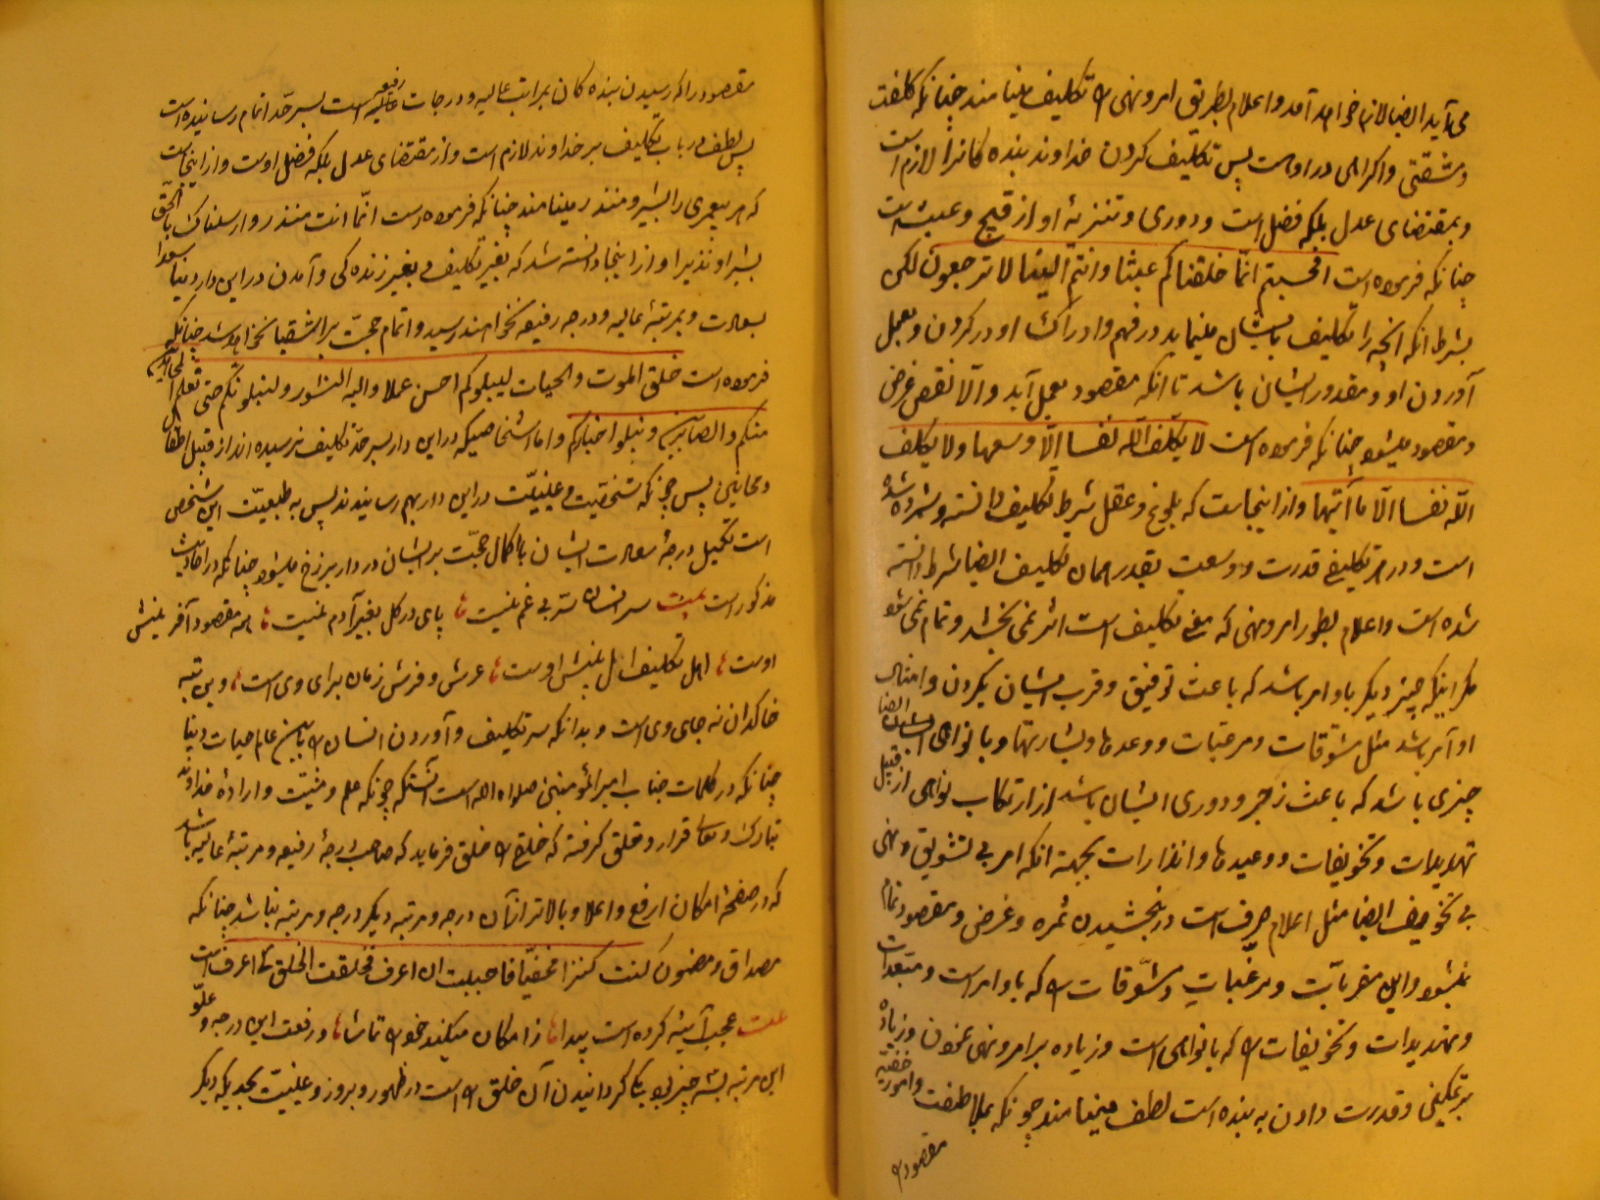 می‌آید ایضا لازم خواهد آمد و اعلام بطریق امر و نهی را تکلیف مینامند چنانکه کلفت
و مشقتی و اکراهی در او است پس تکلیف کردن خداوند بنده کانرا لازم است
و بمقتضای عدل بلکه فضل است و دوری و تنزیهٔ او از قبیح و عبث است
چنانکه فرموده است افحسبتم انّما خلقناکم عبثا و انتم الینا لا ترجعون لکن
بشرط انکه انچه را تکلیف بایشان مینماید در فهم و ادراک او در کردن و بعمل
آوردن او و مقدور ایشان باشد تا انکه مقصود بعمل آید و الّا نقص غرض
و مقصود میشود چنانکه فرموده است لا یکلّف اللّه نفسا الّا وسعها و لا یکلف
اللّه نفسا الّا ما آتیها و از اینجاست که بلوغ و عقل شرط تکلیف دانسته و شمرده شده
است و در هر تکلیفی قدرت و وسعت بقدر همان تکلیف ایضا شرط دانسته
شده است و اعلام بطور امر و نهی که معنی تکلیف است اثر نمی‌بخشد و تمام نمی‌شود
مگر اینکه چیز دیگر با اوامر باشد که باعث توفیق و قرب ایشان بکردن و امتثال
او آمر باشد مثل مشوّقات و مرغبات و وعدها و بشارتها و با نواهی ایشان ایضا
چیزی باشد که باعث زجر و دوری ایشان باشد از ارتکاب نواهی از قبیل
تهدیدات و تخویفات و وعیدها و انذارات بجهة انکه امر بی تشویق و نهی
بی تخویف ایضا مثل اعلام صرف است در نبخشیدن ثمره و غرض و مقصود تمام
نمیشود و این مقربات و مرغبات و مشوّقات را که با اوامر است و مبعدات
و تهدیدات و تخویفات را که با نواهی است و زیاده بر امر و نهی نمودن و زیاده
بر تمکین و قدرت دادن به بنده است لطف مینامند چونکه بملاطفت و امور خفیّه
مقصود را
مقصود را که رسیدن بنده کان بمراتب عالیه و درجات رفیعه عالیه است بسر حدّ اتمام رسانیده است
پس لطف در باب تکلیف بر خداوند لازم است و از مقتضای عدل بلکه فضل اوست و از اینجاست
که هر پیغمبری را بشیر و منذر مینامند چنانکه فرموده است انّما انت منذر و ارسلناک بالحقّ
بشیرا و نذیرا و از اینجا دانسته شد که بغیر تکلیف و بغیر زنده‌کی و آمدن در این دار دنیا سعدا
بسعادت و بمرتبهٔ عالیه و درجه رفیعه نخواهند رسید و اتمام حجّت بر اشقیا نخواهد شد چنانکه
فرموده است خلق الموت و الحیات لیبلوکم احسن عملا و الیه النشور و لنبلونّکم حتی نعلم المجاهدین
منکم و الصابرین و نبلو اخبارکم و اما اشخاصیکه در این دار بسر حدّ تکلیف نرسیده اند از قبیل اطفال
و مجانین پس چونکه شخصیّت و عینیّت در این دار بهم رسانیدند پس به طبعیّت این شخص
است تکمیل درجهٔ سعادت ایشان یا اکمال حجّت بر ایشان در دار برزخ میشود چنانکه در احادیث
مذکور است بیت سر انسان سّر بی غم نیست پای در کل بغیر آدم نیست همه مقصود آفرینش
اوست اهل تکلیف اهل بینش اوست عرش و فرش زمان برای وی است وین تیه
خاکدان نه جای وی است و بدانکه سر تکلیف و آوردن انسان را باین عالم حیات دنیا
چنانکه در کلمات جناب امیر المؤمنین صلواه اللّه است آنستکه چونکه علم و مشیّت و ارادهٔ خداوند
تبارک و تعالی قرار و تعلق گرفته که خلقی را خلق فرماید که صاحب درجهٔ رفیعه و مرتبهٔ عالیه باشد
که در صفحهٔ امکان ارفع و اعلا و بالاتر از آن درجه و مرتبه دیگر درجه و مرتبه نباشد چنانکه
مصداق و مضمون کنت کنزا مخفیّا فاحببت ان اعرف فخلقت الخلق لکی اعرف است
عجب آیینه کرده است پیدا ز امکان میکند خود را تماشا و رفعت این درجه و علّو
این مرتبه بسته بچیزی یکتا کردانیدن آن خلق را است در ظهور و بروز و عینیّت بحدیکه دیگر